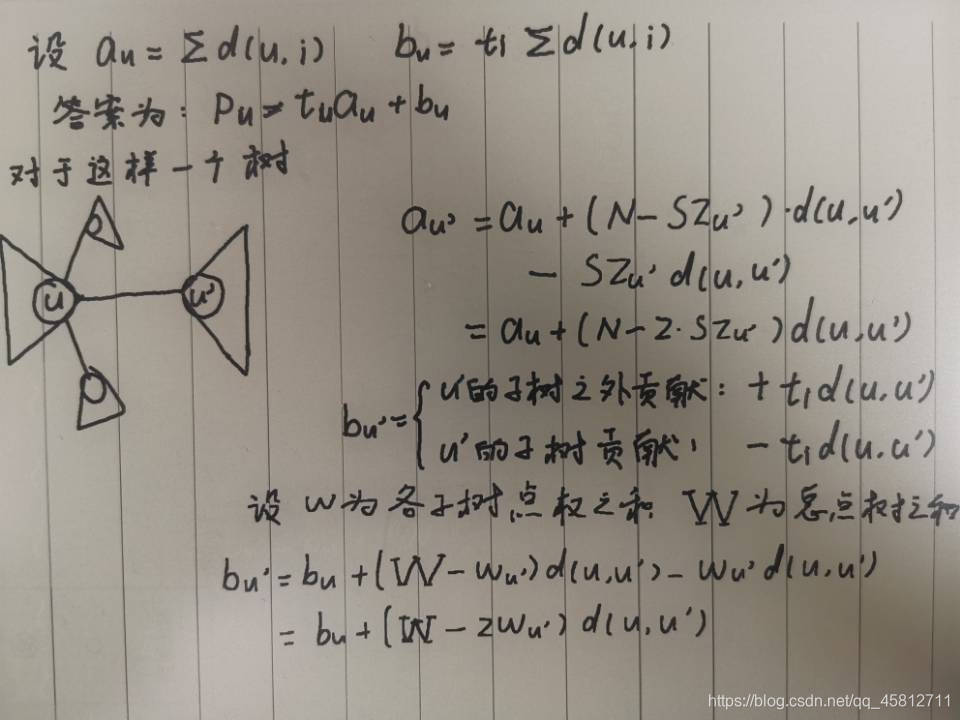 设 au = Σd(u,i) bu = ti Σd(u,i)
答案为: Pu = tuau + bu
对于这样一个树
u
u'
au' = au + (N-SZu')·d(u,u')
- SZu' d(u,u')
= au + (N-2·SZu')d(u,u')
bu' = { u'的子树之外贡献: + ti d(u,u')
u'的子树贡献: - ti d(u,u')
设 w 为各子树点权之和 W 为总点权之和
bu' = bu + (W-wu')d(u,u') - wu' d(u,u')
= bu + (W-2wu') d(u,u')
https://blog.csdn.net/qq_45812711